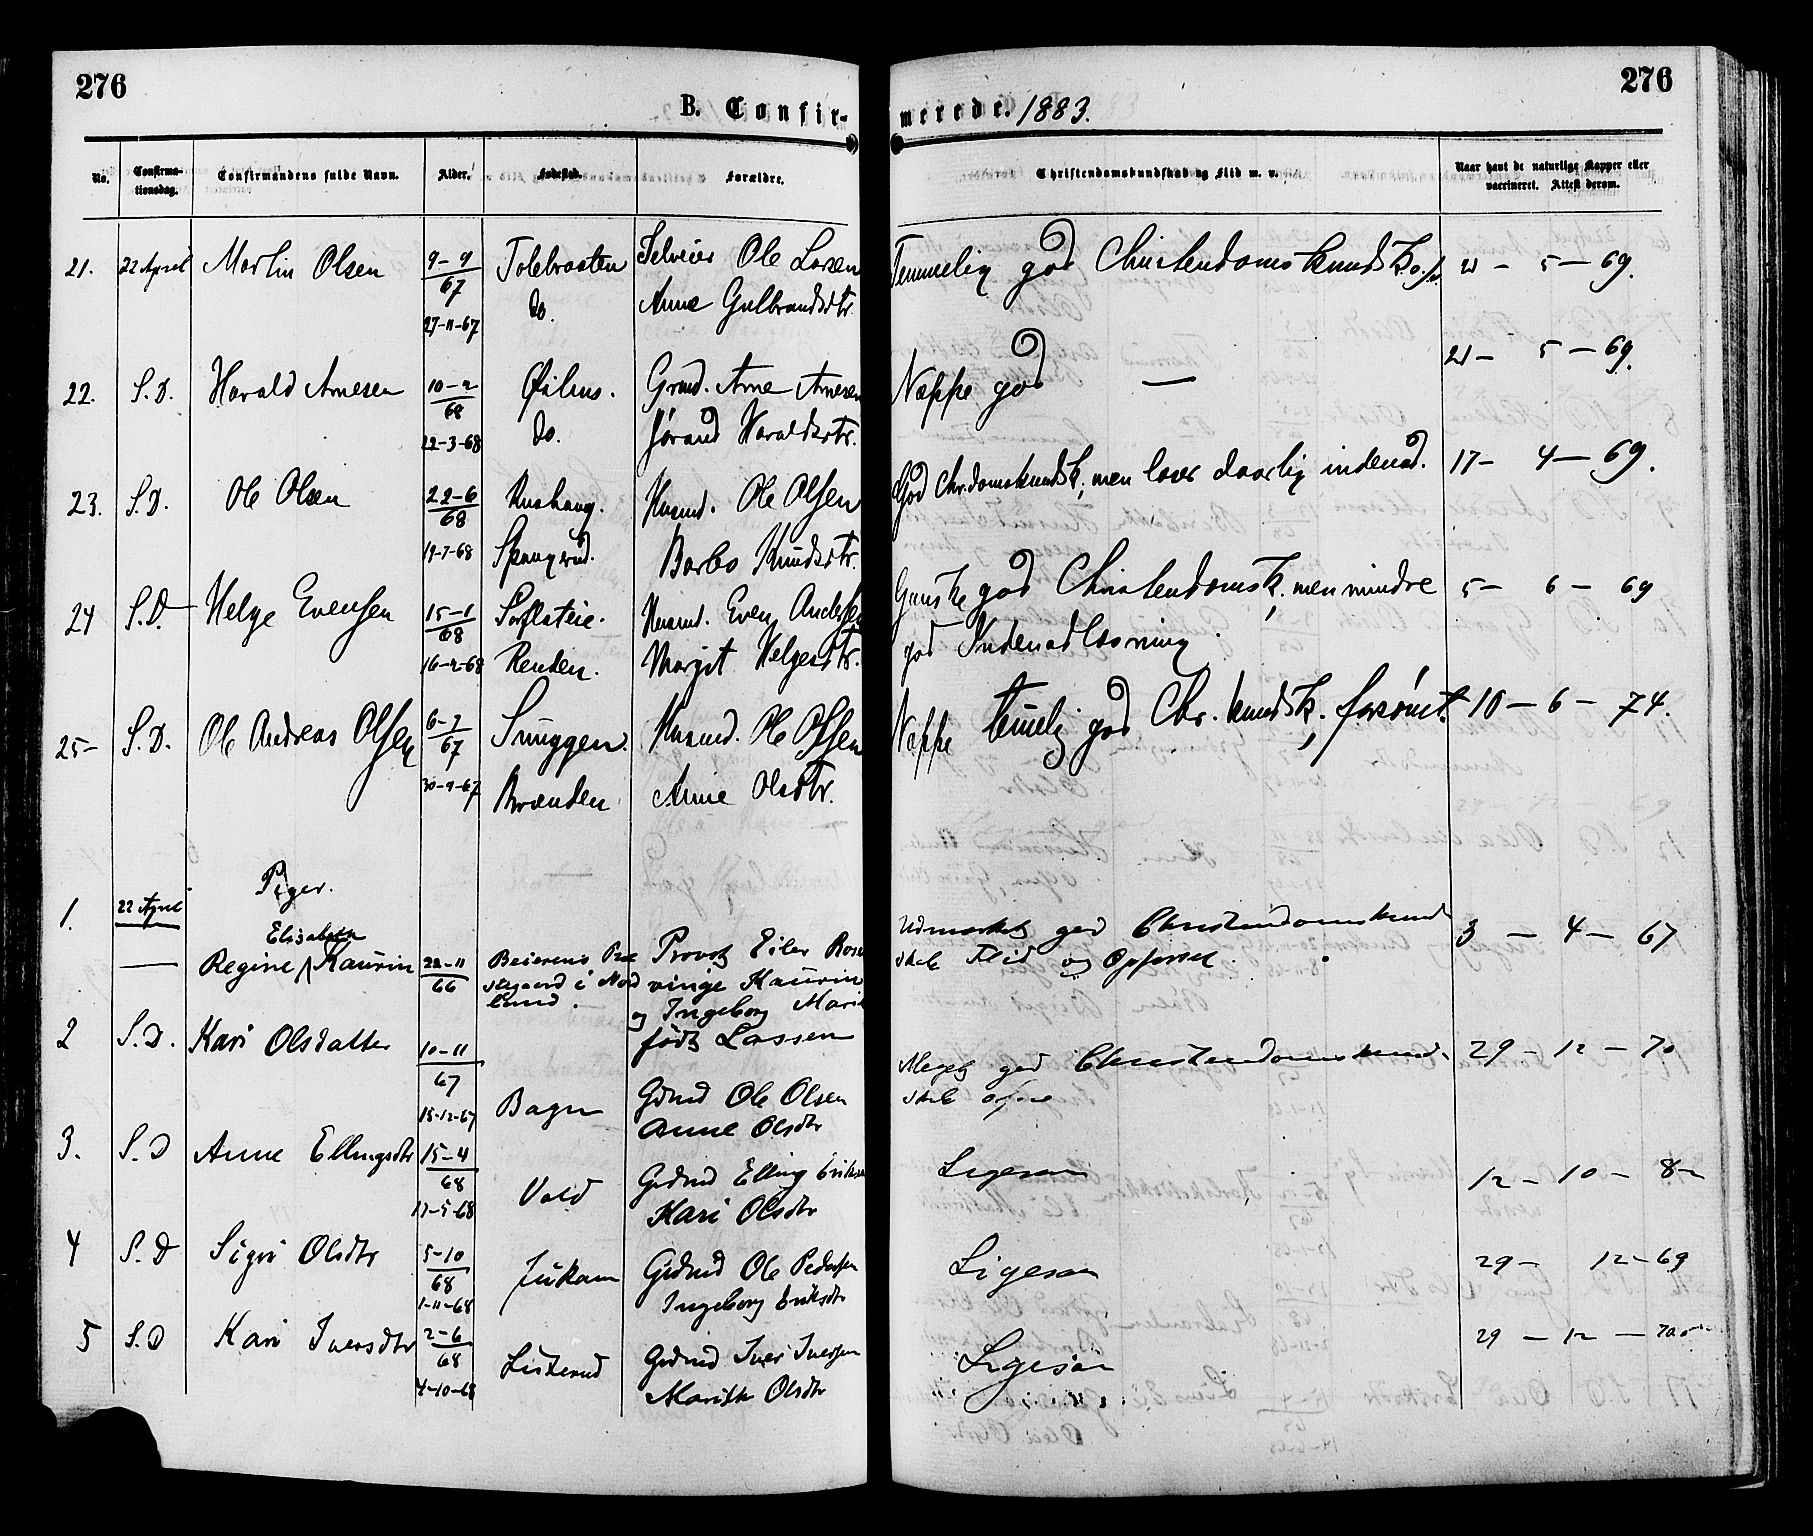 276
276
B. Confir-
merede. 1883.
No.
Confirma-
tionsdag.
Confirmandens fulde Navn.
Alder.
Fødested.
Forældre.
Christendomskundskab og Flid m. v.
Naar havt de naturlige Kopper eller
vaccineret. Attest derom.
21. 22 April Martin Olsen 9-9 Tolebraaten Selveier Ole Larsen Temmelig god Christendomskundsk. 21 - 5 - 69.
67 do. Anne Gulbrandsdtr.
27-11-67
22. S.D. Harald Arnesen 10-2 Grmd. Arne Arnesen Neppe god — 21 - 5 - 69.
68
22-3-68 do. Jørand Haraldsdtr.
23. S.D. Ole Olsen 22-6 Husmd. Ole Olsen God Chr.domskundsk, men læser daarlig indenad. 17 - 4 - 69.
68
19-7-68 Spangrud. Barbo Knudsdtr.
24 S.D. Helge Evensen 15-1 Husmd. Even Andersen Ganske god Christendomsk, men mindre 5 - 6 - 69
68 god Indenadlæsning.
16-2-68 Renden. Margit Helgesdtr.
25- S.D. Ole Andreas Olsen 6-7 Smuggen. Husmd. Ole Olsen Neppe temelig god Chr. kundsk, forsømt. 10 - 6 - 74.
67
30-9-67 Brænden Anne Olsdtr.
Piger.
1. 22 April
Elisabeth
— Regine Kaurin 22-11 Beierens Præ Provst Eiler Rosen Udmærket god Christendomskund 3 - 4 - 67
66 stegaard i Nord vinge Kaurin skab Flid og Opførsel.
land. og Ingeborg Marie
født Lassen
2 S.D. Kari Olsdatter 10-11 Meget god Christendomskund- 29 - 12 - 70
67 Bagn Gdmd Ole Olsen skab
15-12-67 Anne Olsdtr
3. S.D Anne Ellingsdtr 15-4 Vold Gdmd Elling Eriksen Ligesaa 12 - 10 - 82
68
17-5-68 Kari Olsdtr
4 S.D Sigri Olsdtr 5-10 Jukam Gdmd Ole Pedersen Ligesaa 29 - 12 - 69
68
1-11-68 Ingeborg Eriksdtr
5 S.D Kari Iversdtr 2-6 Listerud Gdmd Iver Iversen Ligesaa 29 - 12 - 70
68
4-10-68 Marith Olsdtr